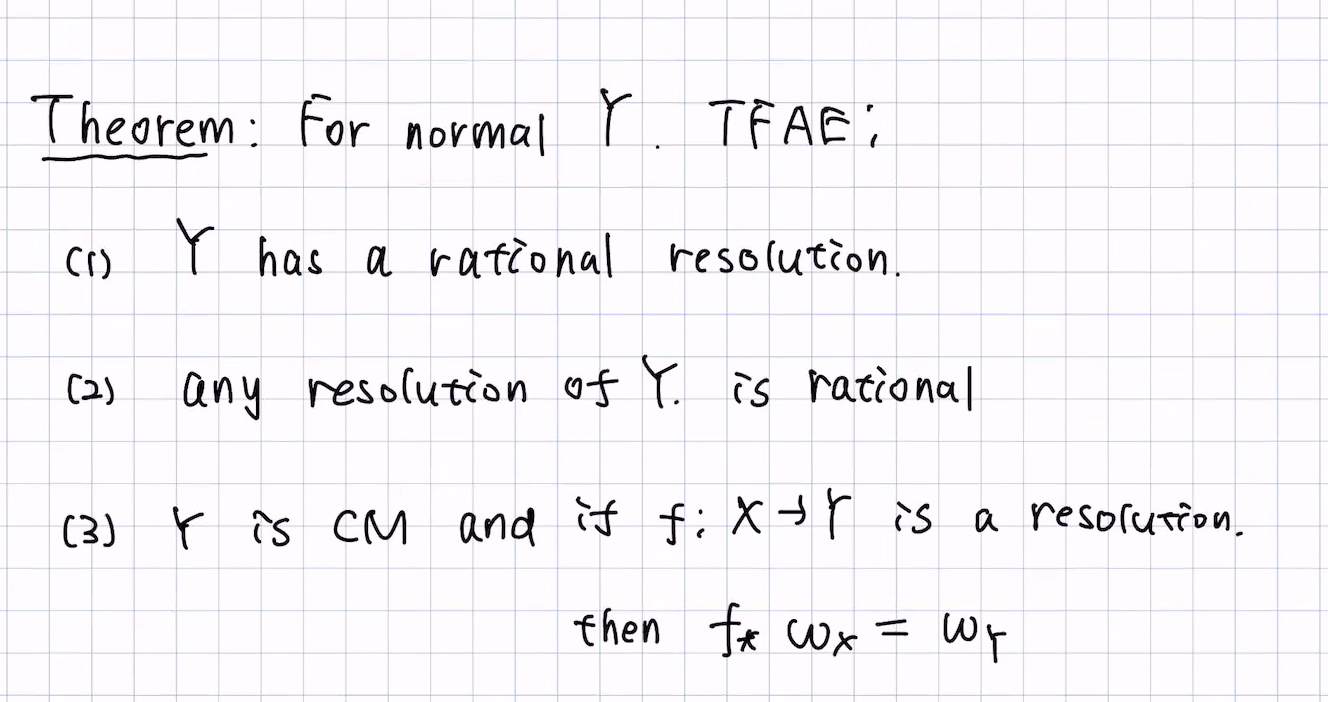 Theorem: For normal Y. TFAE;
(1) Y has a rational resolution.
(2) any resolution of Y. is rational
(3) Y is CM and if f: X→Y is a resolution.
then f_* ω_X = ω_Y